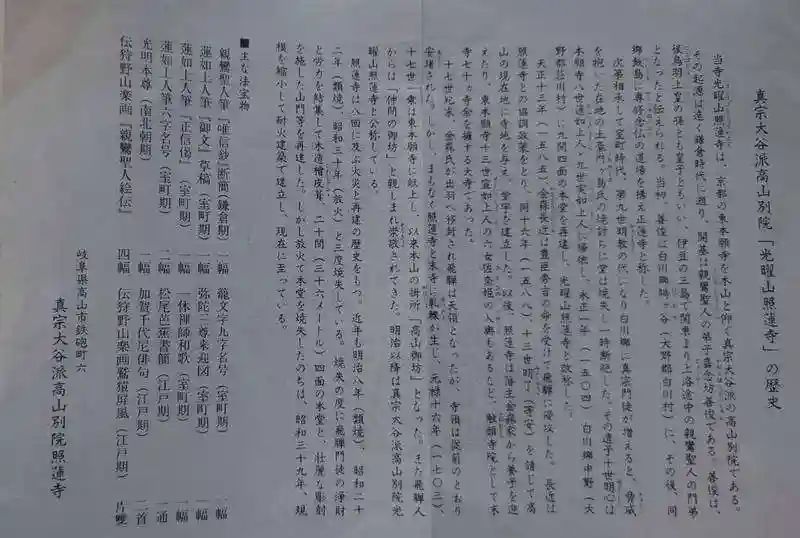 真宗大谷派高山別院「光曜山照蓮寺」の歴史
当寺光曜山照蓮寺は、京都の東本願寺を本山と仰ぐ真宗大谷派の高山別院である。
その起源は遠く鎌倉時代に遡り、開基は親鸞聖人の弟子嘉念坊善俊である。善俊は、
後鳥羽上皇の孫とも皇子ともいい、伊豆の三島で関東より上洛途中の親鸞聖人の門弟
となったと伝えられる。当初、善俊は白川郷鳩ヶ谷（大野郡白川村）に、その後、同
郷飯島に専修念仏の道場を構え正蓮寺と称した。
次第相承して室町時代、第九世明教の代になり白川郷に真宗門徒が増えると、脅威
を抱いた在地の土豪内ヶ島氏の焼討ちに堂は焼失し一時断絶した。その遺子十世明心は
本願寺八世蓮如上人・九世実如上人に帰依し、永正元年（一五〇四）白川郷中野（大
野郡荘川村）に九間四面の本堂を再建し、光曜山照蓮寺と改称した。
天正十三年（一五八五）金森長近は豊臣秀吉の命を受けて飛騨に侵攻した。長近は
照蓮寺との協調政策をとり、同十六年（一五八八）、十三世明了（等安）を請して高
山の現在地に寺地を与え、堂宇を建立した。以後、照蓮寺は藩主金森家から養子を迎
えたり、東本願寺十三世宣如上人の六女佐奈姫の入輿もあるなど、触頭寺院として末
寺七十ヵ寺余を擁する大寺であった。
十七世紀末、金森氏が出羽へ移封され飛騨は天領となったが、寺領は従前のとおり
安堵された。しかし、まもなく照蓮寺と末寺に軋轢が生じ、元禄十六年（一七〇三）、
十七世一乗は東本願寺に献上し、以来本山の掛所「高山御坊」となった。また飛騨人
からは「仲間の御坊」と親しまれ崇敬されてきた。明治以降は真宗大谷派高山別院光
曜山照蓮寺と公称している。
照蓮寺は八回に及ぶ火災と再建の歴史をもつ。近年も明治八年（類焼）、昭和二十
二年（類焼）、昭和三十年（放火）と三度焼失している。焼失の度に飛騨門徒の浄財
と労力を結集して木造檜皮葺、二十間（三十六メートル）四面の本堂と、壮麗な彫刻
を施した山門等を再建した。しかし放火で本堂を焼失したのちは、昭和三十九年、規
模を縮小して耐火建築で建立し、現在に至っている。
■主な法宝物
親鸞聖人筆『唯信鈔』断簡（鎌倉期） 一幅 籠文字九字名号（室町期） 一幅
蓮如上人筆『御文』草稿（室町期） 一幅 弥陀三尊来迎図（室町期） 一幅
蓮如上人筆『正信偈』（室町期） 二幅 一休禅師和歌（室町期） 一幅
蓮如上人筆六字名号（室町期） 二幅 松尾芭蕉書簡（江戸期） 一通
光明本尊（南北朝期） 一幅 加賀千代尼俳句（江戸期） 二首
伝狩野山楽画『親鸞聖人絵伝』 四幅 伝狩野山楽画鷲猿屏風（江戸期） 片雙
岐阜県高山市鉄砲町六
真宗大谷派高山別院照蓮寺